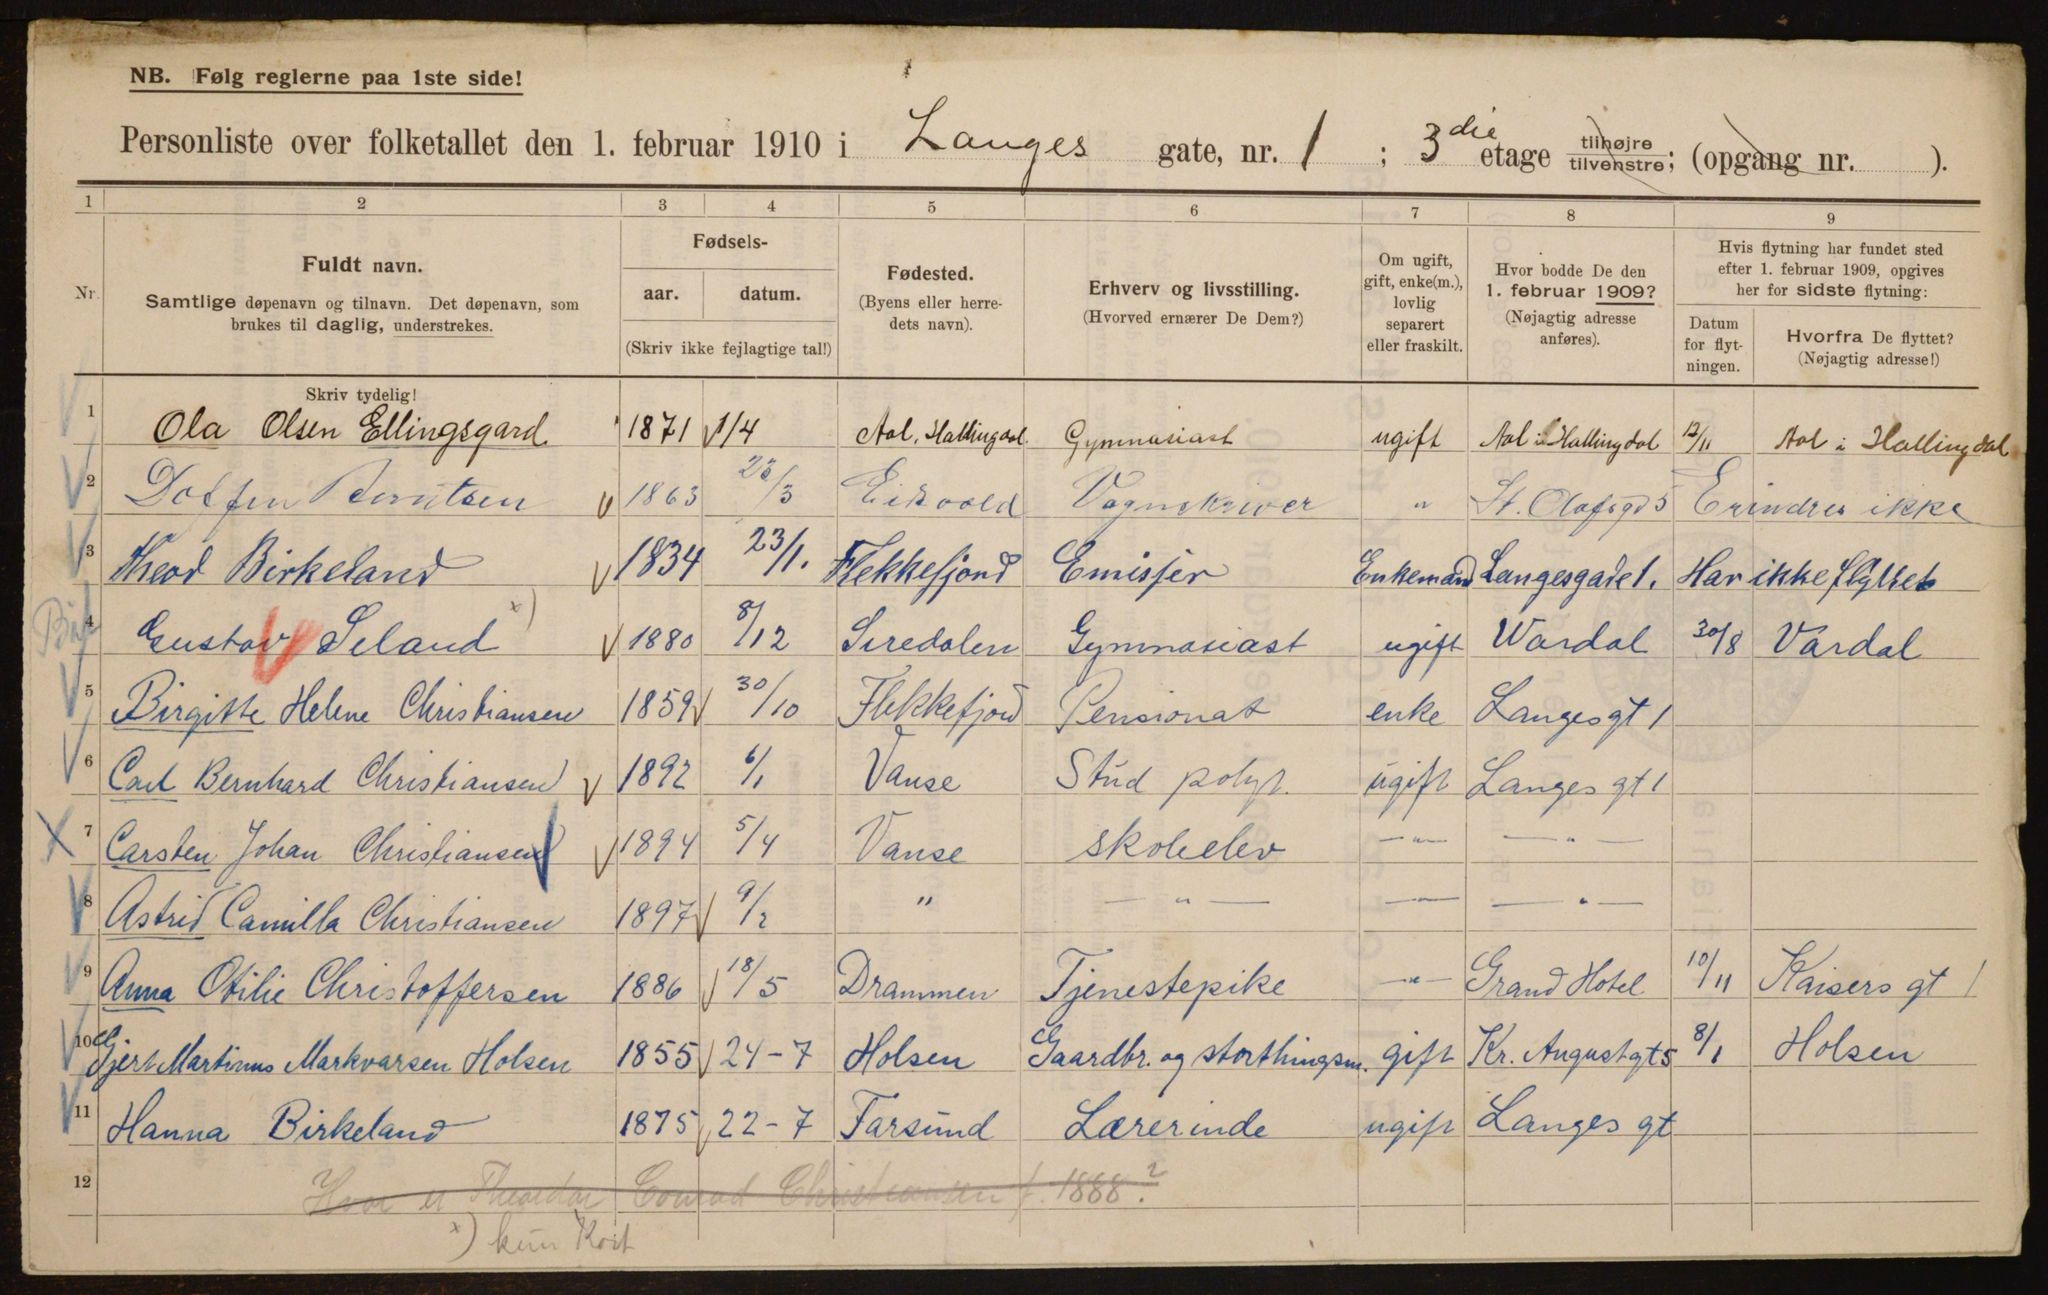 NB. Følg reglerne paa 1ste side!
Personliste over folketallet den 1. februar 1910 i Langes gate, nr. 1 ; 3die etage tilhøjre tilvenstre; (opgang nr. ).
1 2 3 4 5 6 7 8 9
Nr. Fuldt navn. Samtlige døpenavn og tilnavn. Det døpenavn, som brukes til daglig, understrekes. Fødsels- aar. datum. (Skriv ikke fejlagtige tal!) Fødested. (Byens eller herredets navn). Erhverv og livsstilling. (Hvorved ernærer De Dem?) Om ugift, gift, enke(m.), lovlig separert eller fraskilt. Hvor bodde De den 1. februar 1909? (Nøjagtig adresse anføres). Hvis flytning har fundet sted efter 1. februar 1909, opgives her for sidste flytning: Datum for flytningen. Hvorfra De flyttet? (Nøjagtig adresse!)
Skriv tydelig!
1 Ola Olsen Ellingsgard 1871 1/4 Aol, Hallingdal. Gymnasiast ugift Aol i Hallingdal 12/11 Aol i Hallingdal
2 Berntsen 1863 23/3 Eidsvold Vognskriver " St. Olafsgd 5 Erindrer ikke
3 Theod Birkeland 1834 23/1. Flekkefjord Emisjer Enkemand Langesgade 1. Har ikke flyttet
4 Gustav Seland x) 1880 8/12 Siredalen Gymnasiast ugift Wardal 30/8 Vardal
5 Birgitte Helene Christiansen 1859 30/10 Flekkefjord Pensionat enke Langes gt 1
6 Carl Bernhard Christiansen 1892 6/1 Vanse Stud polyt. ugift Langes gt 1
7 Carsten Johan Christiansen 1894 5/4 Vanse skoleelev — " — — " —
8 Astrid Camilla Christiansen 1897 9/2 " — " — — " — — " —
9 Anna Otilie Christoffersen 1886 18/5 Drammen Tjenestepike — " — Grand Hotel 10/11 Kaisers gt 1
10 Gjert Martinus Markvarsen Holsen 1855 24-7 Holsen Gaardbr. og storthingsm. gift Kr. Augustgt 5 8/1 Holsen
11 Hanna Birkeland 1875 22-7 Farsund Lærerinde ugift Langes gt
12 Hvor er Theordor Conrad Christiansen f. 1888.?
x) kun Kort